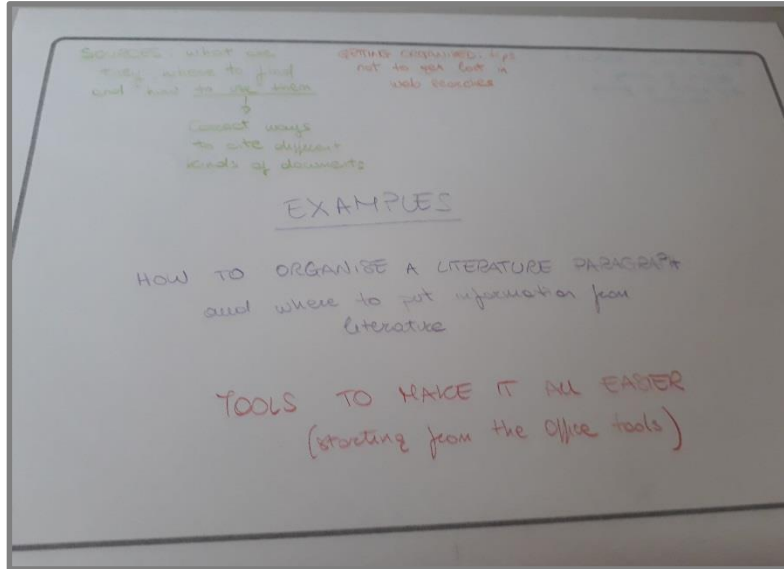 SOURCES: what are
they, where to find
and how to use them
Correct ways
to cite different
kinds of documents
GETTING ORGANISED: tips
not to get lost in
web searches
EXAMPLES
HOW TO ORGANISE A LITERATURE PARAGRAPH
and where to put information from
literature
TOOLS TO MAKE IT ALL EASIER
(starting from the Office tools)